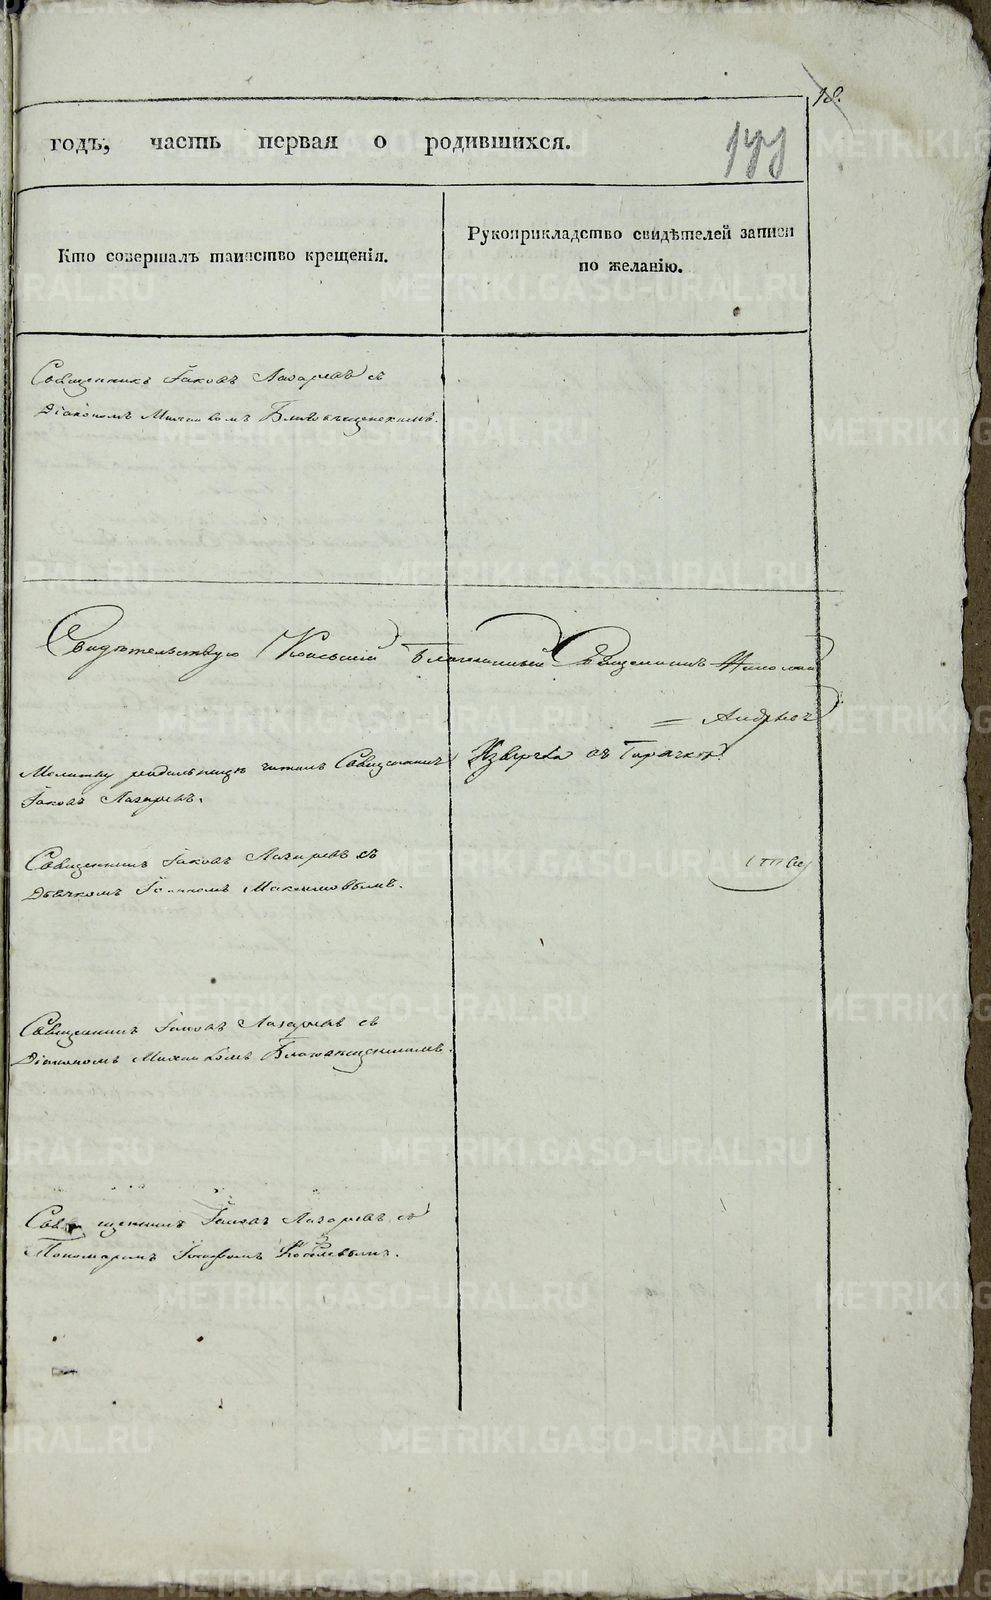 18.
годъ, часть первая о родившихся.
Кто совершалъ таинство крещенія.
Рукоприкладство свидѣтелей записи
по желанію.
Священникъ Іаковъ Лазаревъ съ
Діакономъ Михаиломъ Благовѣщенскимъ.
Свидѣтельствую Священникъ Николай
Андреевъ
Молитву родильницѣ читалъ Священникъ
Іаковъ Лазаревъ.
Священникъ Іаковъ Лазаревъ съ
Дьячкомъ Максимовымъ.
Священникъ Іаковъ Лазаревъ съ
Діакономъ Михаиломъ Благовѣщенскимъ.
Священникъ Іаковъ Лазаревъ съ
Пономаремъ
METRIKI.GASO-URAL.RU